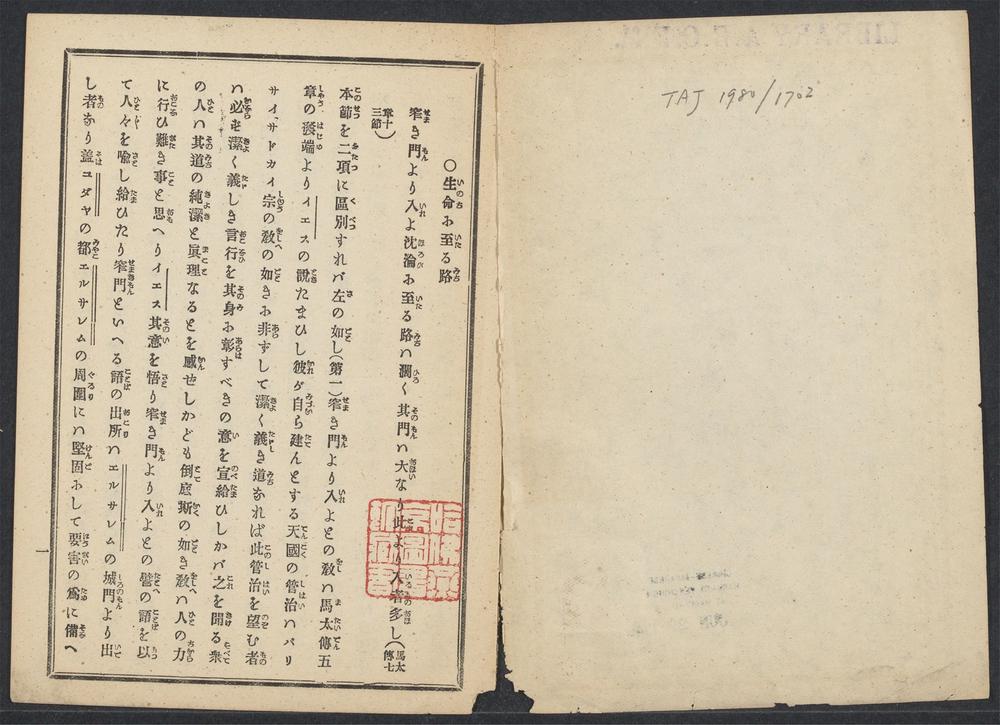 TAJ 1980/1702
○生命に至る路
窄き門より入よ沈淪に至る路ハ濶く其門ハ大なり此より入者多し(馬太傳七
章十三節)
本節を二項に區別すれバ左の如し(第一)窄き門より入よとの敎ハ馬太傳五
章の發端よりイエスの說たまひし彼が自ら建んとする天國の管治ハパリ
サイ、サドカイ宗の敎の如きに非ずして潔く義き道なれば此管治を望む者
ハ必ず潔く義しき言行を其身に彰すべきの意を宣給ひしかバ之を聞る衆
の人ハ其道の純潔と眞理なるとを感せしかども倒底斯の如き敎ハ人の力
に行ひ難き事と思へりイエス其意を悟り窄き門より入よとの譬の語を以
て人々を喩し給ひたり窄門といへる語の出所ハエルサレムの城門より出
し者なり蓋ユダヤの都エルサレムの周圍にハ堅固にして要害の爲に備へ
一